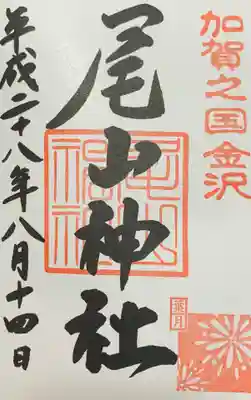 加賀之国金沢
尾山神社
尾山神社
葉月
平成二十八年八月十四日